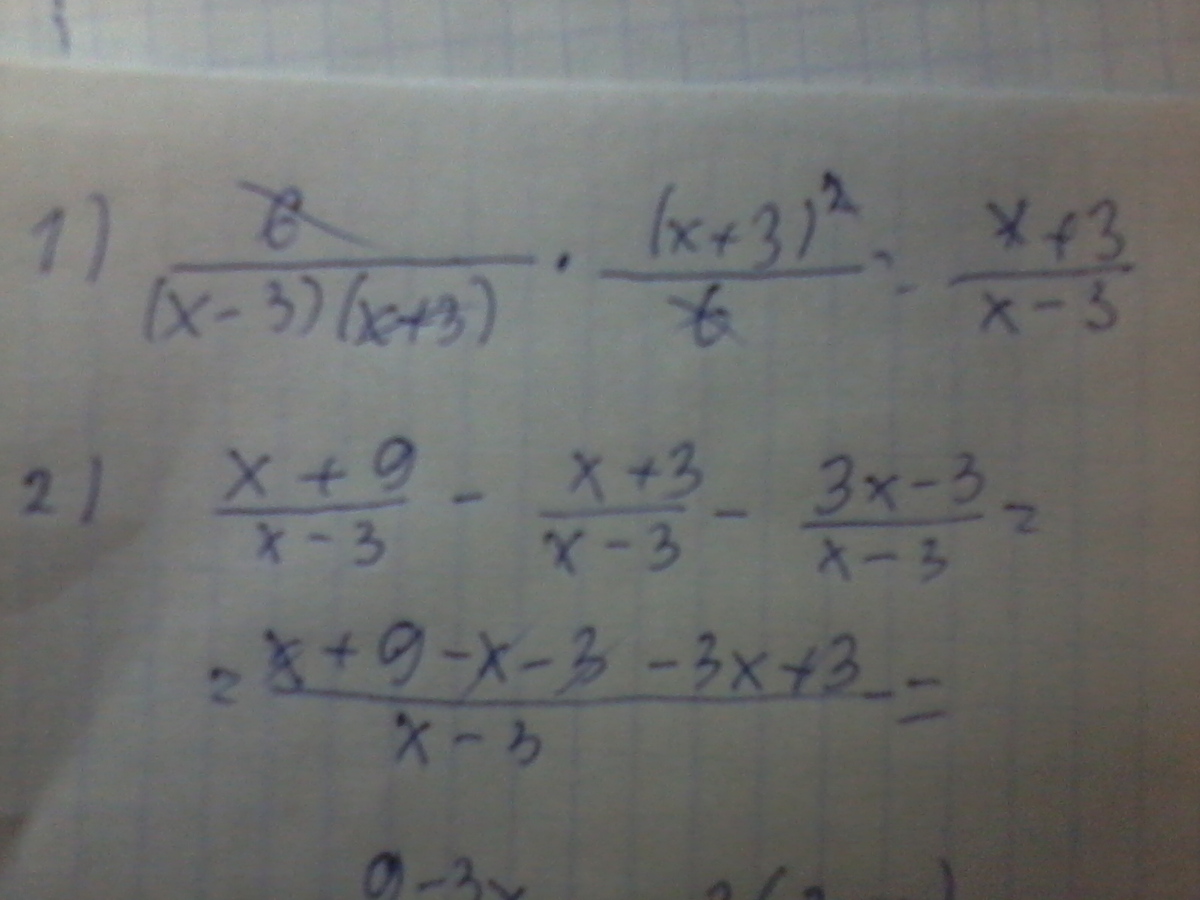 1) 6/((x-3)(x+3)) · (x+3)²/6 = (x+3)/(x-3)
2) (x+9)/(x-3) - (x+3)/(x-3) - (3x-3)/(x-3) =
= (x+9-x-3-3x+3)/(x-3) =
9-3x